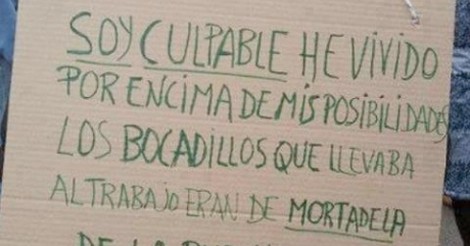 SOY CULPABLE HE VIVIDO
POR ENCIMA DE MIS POSIBILIDADES
LOS BOCADILLOS QUE LLEVABA
AL TRABAJO ERAN DE MORTADELA
DE LA